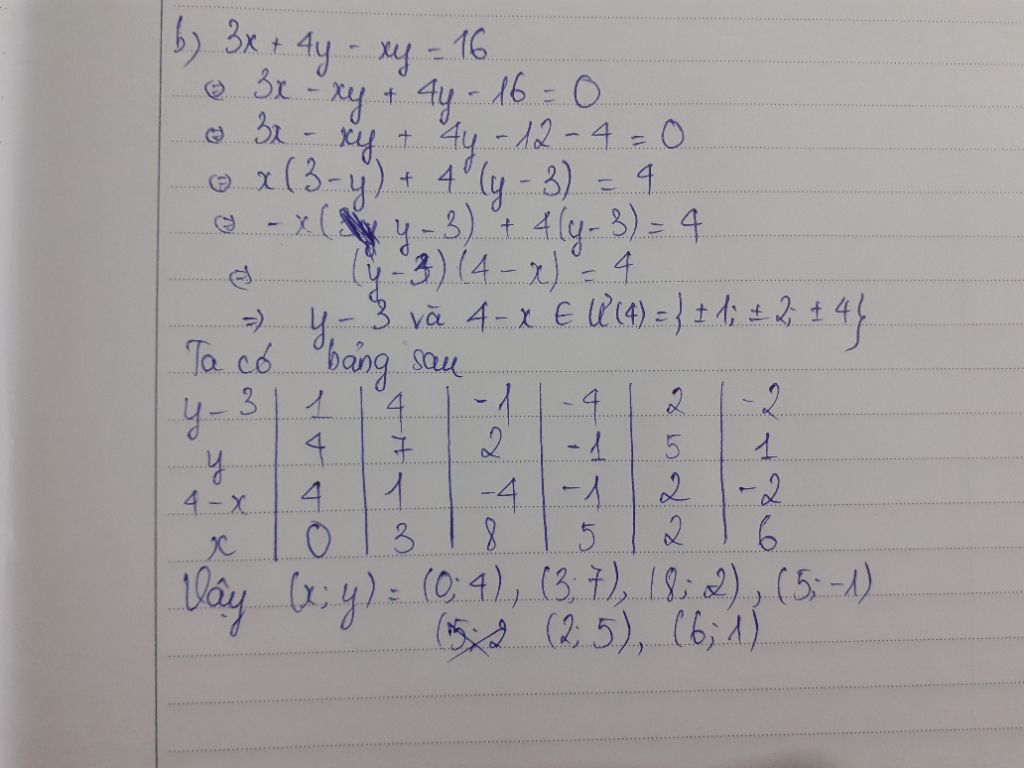 b) 3x + 4y - xy = 16
⇔ 3x - xy + 4y - 16 = 0
⇔ 3x - xy + 4y - 12 - 4 = 0
⇔ x(3-y) + 4 (y-3) = 4
⇔ -x(y-3) + 4(y-3) = 4
⇔ (y-3)(4-x) = 4
⇒ y-3 và 4-x ∈ Ư(4) = {±1; ±2; ±4}
Ta có bảng sau
y-3 | 1 | 4 | -1 | -4 | 2 | -2
y | 4 | 7 | 2 | -1 | 5 | 1
4-x | 4 | 1 | -4 | -1 | 2 | -2
x | 0 | 3 | 8 | 5 | 2 | 6
Vậy (x; y) = (0; 4), (3; 7), (8; 2), (5; -1)
(5; 2 (2; 5), (6; 1)